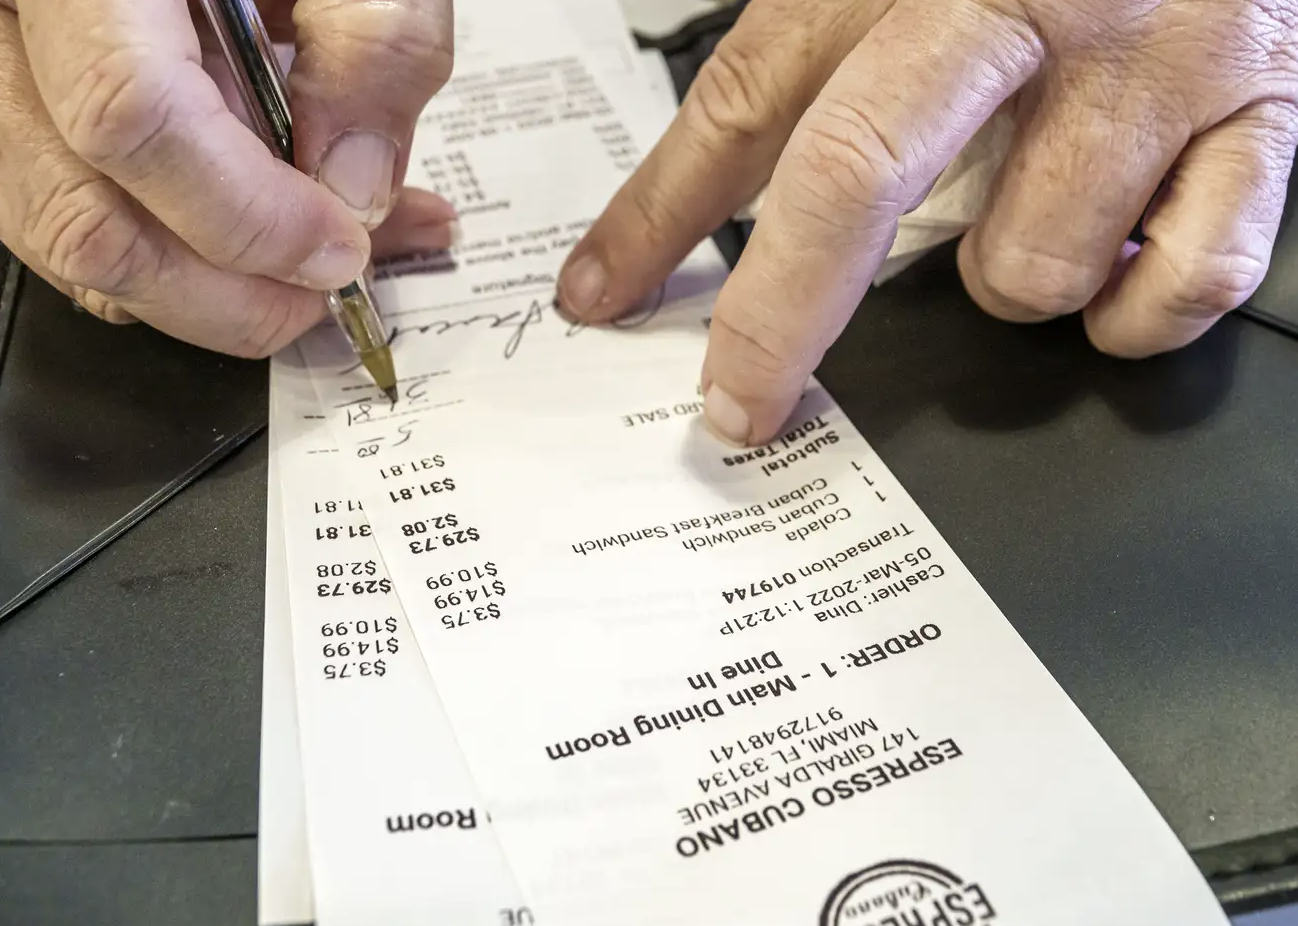 ESPRE
Cubano
ESPRESSO CUBANO
147 GIRALDA AVENUE
MIAMI, FL 33134
9172948141
ORDER: 1 - Main Dining Room
Dine In
Cashier: Dina
05-Mar-2022 1:12:21P
Transaction 019744
1 Colada $3.75
1 Cuban Sandwich $14.99
Cuban Breakfast Sandwich $10.99
Subtotal $29.73
Total Taxes $2.08
$31.81
ARD SALE $31.81
5.00
Signature
ay the above
UE
Room
$3.75
$14.99
$10.99
$29.73
$2.08
31.81
31.81